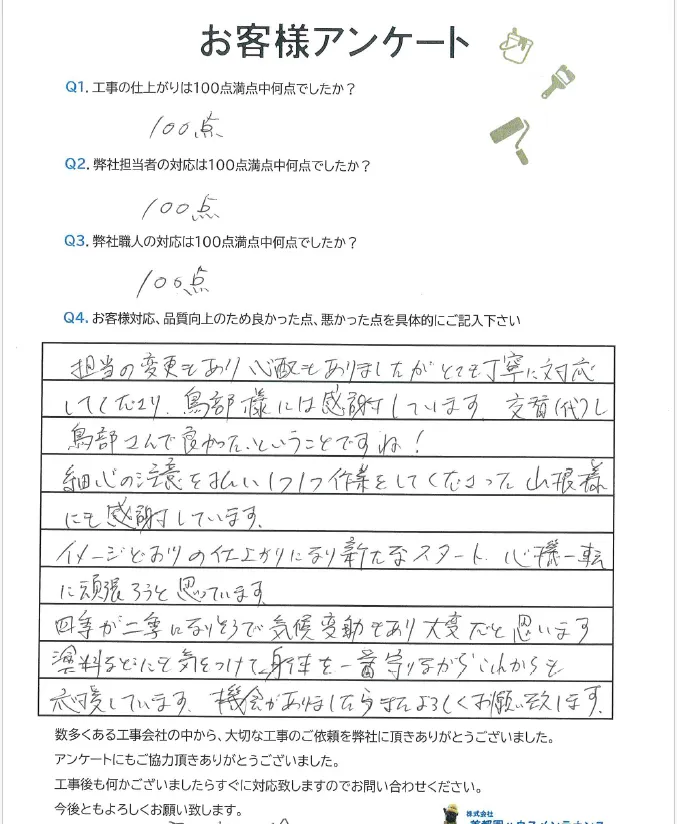 お客様アンケート
Q1. 工事の仕上がりは100点満点中何点でしたか？
100点
Q2. 弊社担当者の対応は100点満点中何点でしたか？
100点
Q3. 弊社職人の対応は100点満点中何点でしたか？
100点
Q4. お客様対応、品質向上のため良かった点、悪かった点を具体的にご記入下さい
担当の変更もあり心配もありましたがとても丁寧に対応
してくださり、鳥部様には感謝しています。交替(代)し
鳥部さんで良かった、ということですね！
細心の注意をはらい1つ1つ作業をしてくださった山根様
にも感謝しています。
イメージどおりの仕上がりになり新たなスタート、心機一転
に頑張ろうと思っています。
四季が二季になりそうで気候変動もあり大変だと思います
塗料などにも気をつけて、身体を一番守りながらこれからも
応援しています。機会がありましたらまたよろしくお願い致します。
数多くある工事会社の中から、大切な工事のご依頼を弊社に頂きありがとうございました。
アンケートにもご協力頂きありがとうございました。
工事後も何かございましたらすぐに対応致しますのでお問い合わせください。
今後ともよろしくお願い致します。
株式会社